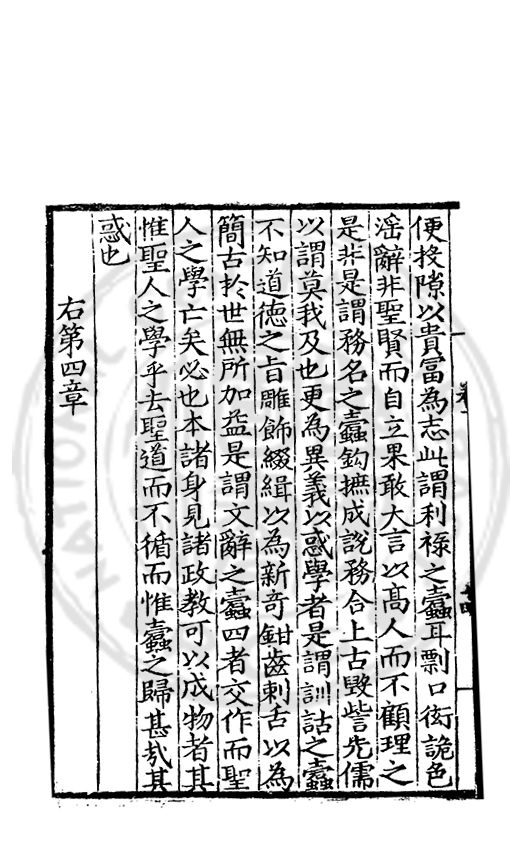 便投隙以貴富為志此謂利祿之蠧耳剽口衒詭色
淫辭非聖賢而自立果敢大言以髙人而不顧理之
是非是謂務名之蠧鈎摭成說務合上古毀訾先儒
以謂莫我及也更為異義以惑學者是謂訓詁之蠧
不知道德之旨雕飾綴緝以為新奇鉗齒刺舌以為
簡古扵世無所加益是謂文辭之蠧四者交作而聖
人之學亡矣必也本諸身見諸政教可以成物者其
惟聖人之學乎去聖道而不循而惟蠧之歸甚㢤其
惑也
右第四章